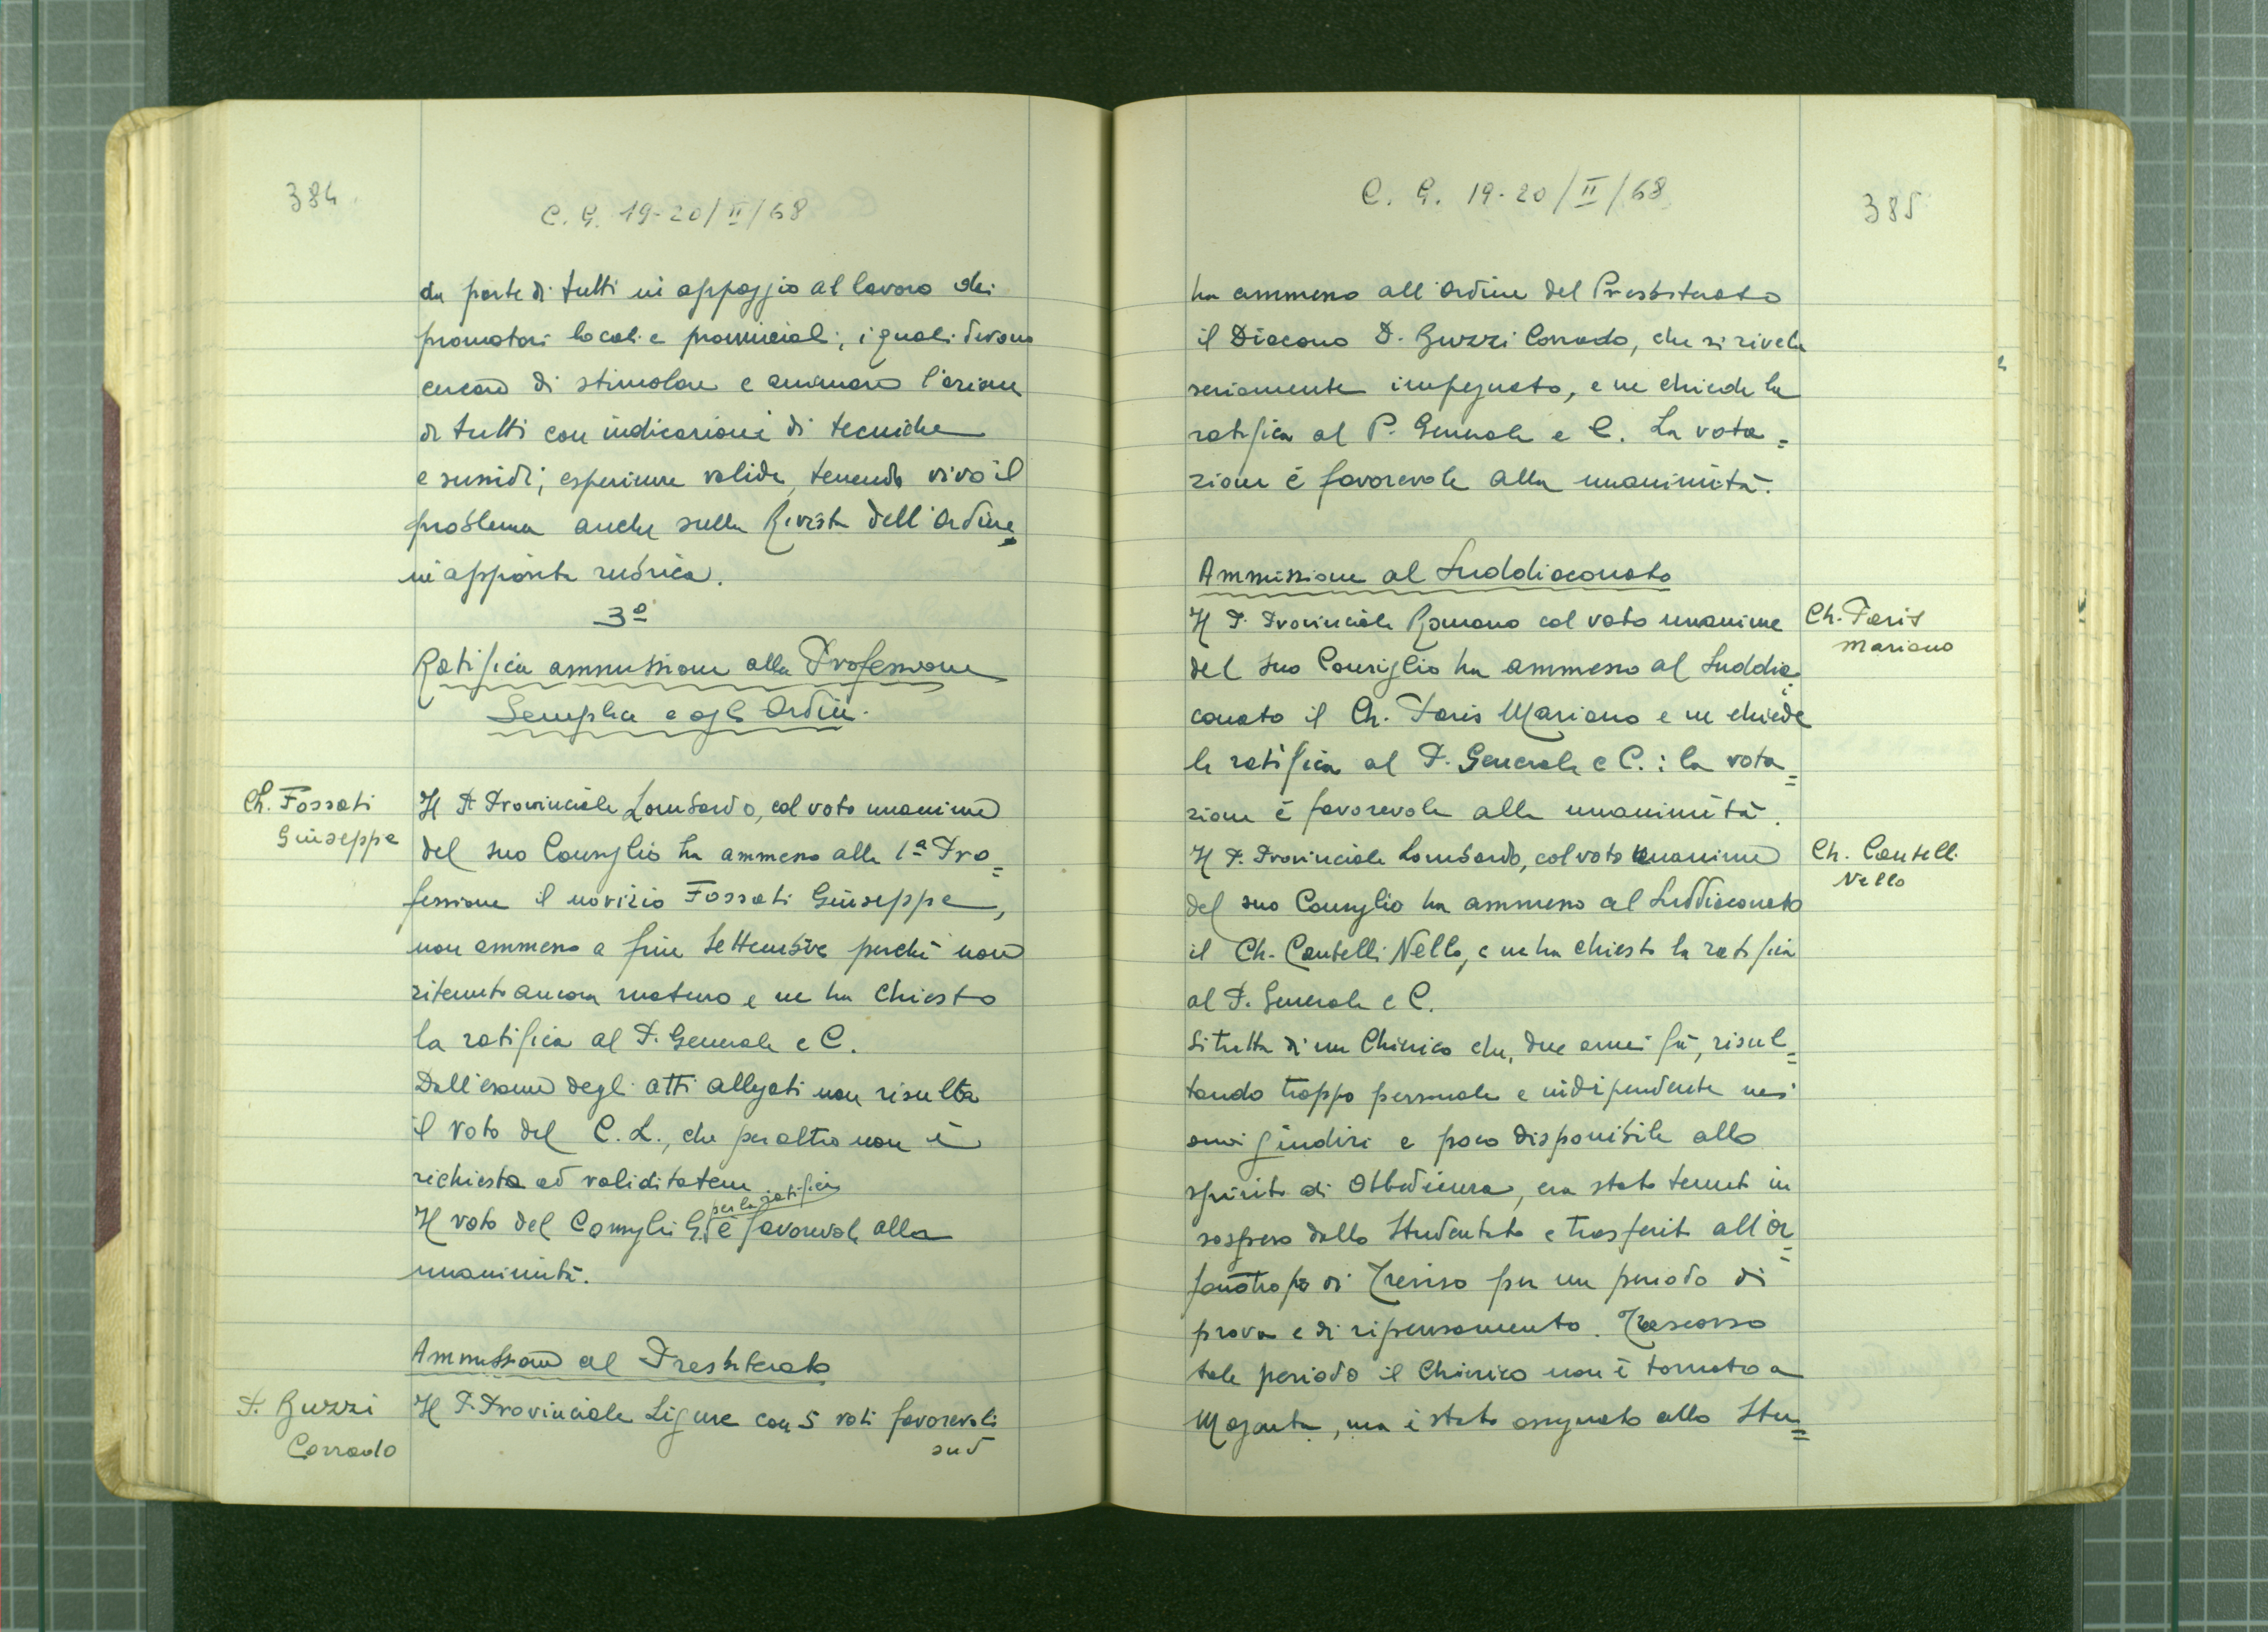 384
C. G. 19-20/II/68
da parte di tutti in appoggio al lavoro dei
promotori locali e provinciali, i quali devono
cercare di stimolare e animare l'azione
di tutti con indicazioni di tecniche
e sussidi, esperienze valide, tenendo vivo il
problema anche sulla Rivista dell'Ordine
in apposita rubrica.
3º
Ratifica ammissione alla Professione
Semplice e agli Ordini.
Ch. Fossati
Giuseppe
Il P. Provinciale Lombardo, col voto unanime
del suo Consiglio ha ammesso alla 1ª Pro=
fessione il novizio Fossati Giuseppe,
non ammesso a fine Settembre perché non
ritenuto ancora maturo e ne ha chiesto
la ratifica al P. Generale e C.
Dall'esame degli atti allegati non risulta
il voto del C. L., che peraltro non è
richiesto ad validitatem
per la ratifica
Il voto del Consiglio G. è favorevole alla
unanimità.
Ammissione al Presbiterato
P. Buzzi
Corrado
Il P. Provinciale Ligure con 5 voti favorevoli
su 5
C. G. 19-20/II/68
385
ha ammesso all'Ordine del Presbiterato
il Diacono D. Buzzi Corrado, che si rivela
seriamente impegnato, e ne chiede la
ratifica al P. Generale e C. La vota=
zione è favorevole alla unanimità.
Ammissione al Suddiaconato
Ch. Faris
Mariano
Il P. Provinciale Romano col voto unanime
del suo Consiglio ha ammesso al Suddia=
conato il Ch. Faris Mariano e ne chiede
la ratifica al P. Generale e C.: la vota=
zione è favorevole alla unanimità.
Ch. Cantelli
Nello
Il P. Provinciale Lombardo, col voto unanime
del suo Consiglio ha ammesso al Suddiaconato
il Ch. Cantelli Nello, e ne ha chiesto la ratifica
al P. Generale e C.
Si tratta di un Chierico che, due anni fa, risul=
tando troppo personale e indipendente nei
suoi giudizi e poco disponibile allo
spirito di Obbedienza, era stato tenuto in
sospeso dallo Studentato e trasferito all'or=
fanotrofio di Treviso per un periodo di
prova e di ripensamento. Trascorso
tale periodo il Chierico non è tornato a
Magenta, ma è stato assegnato allo Stu=